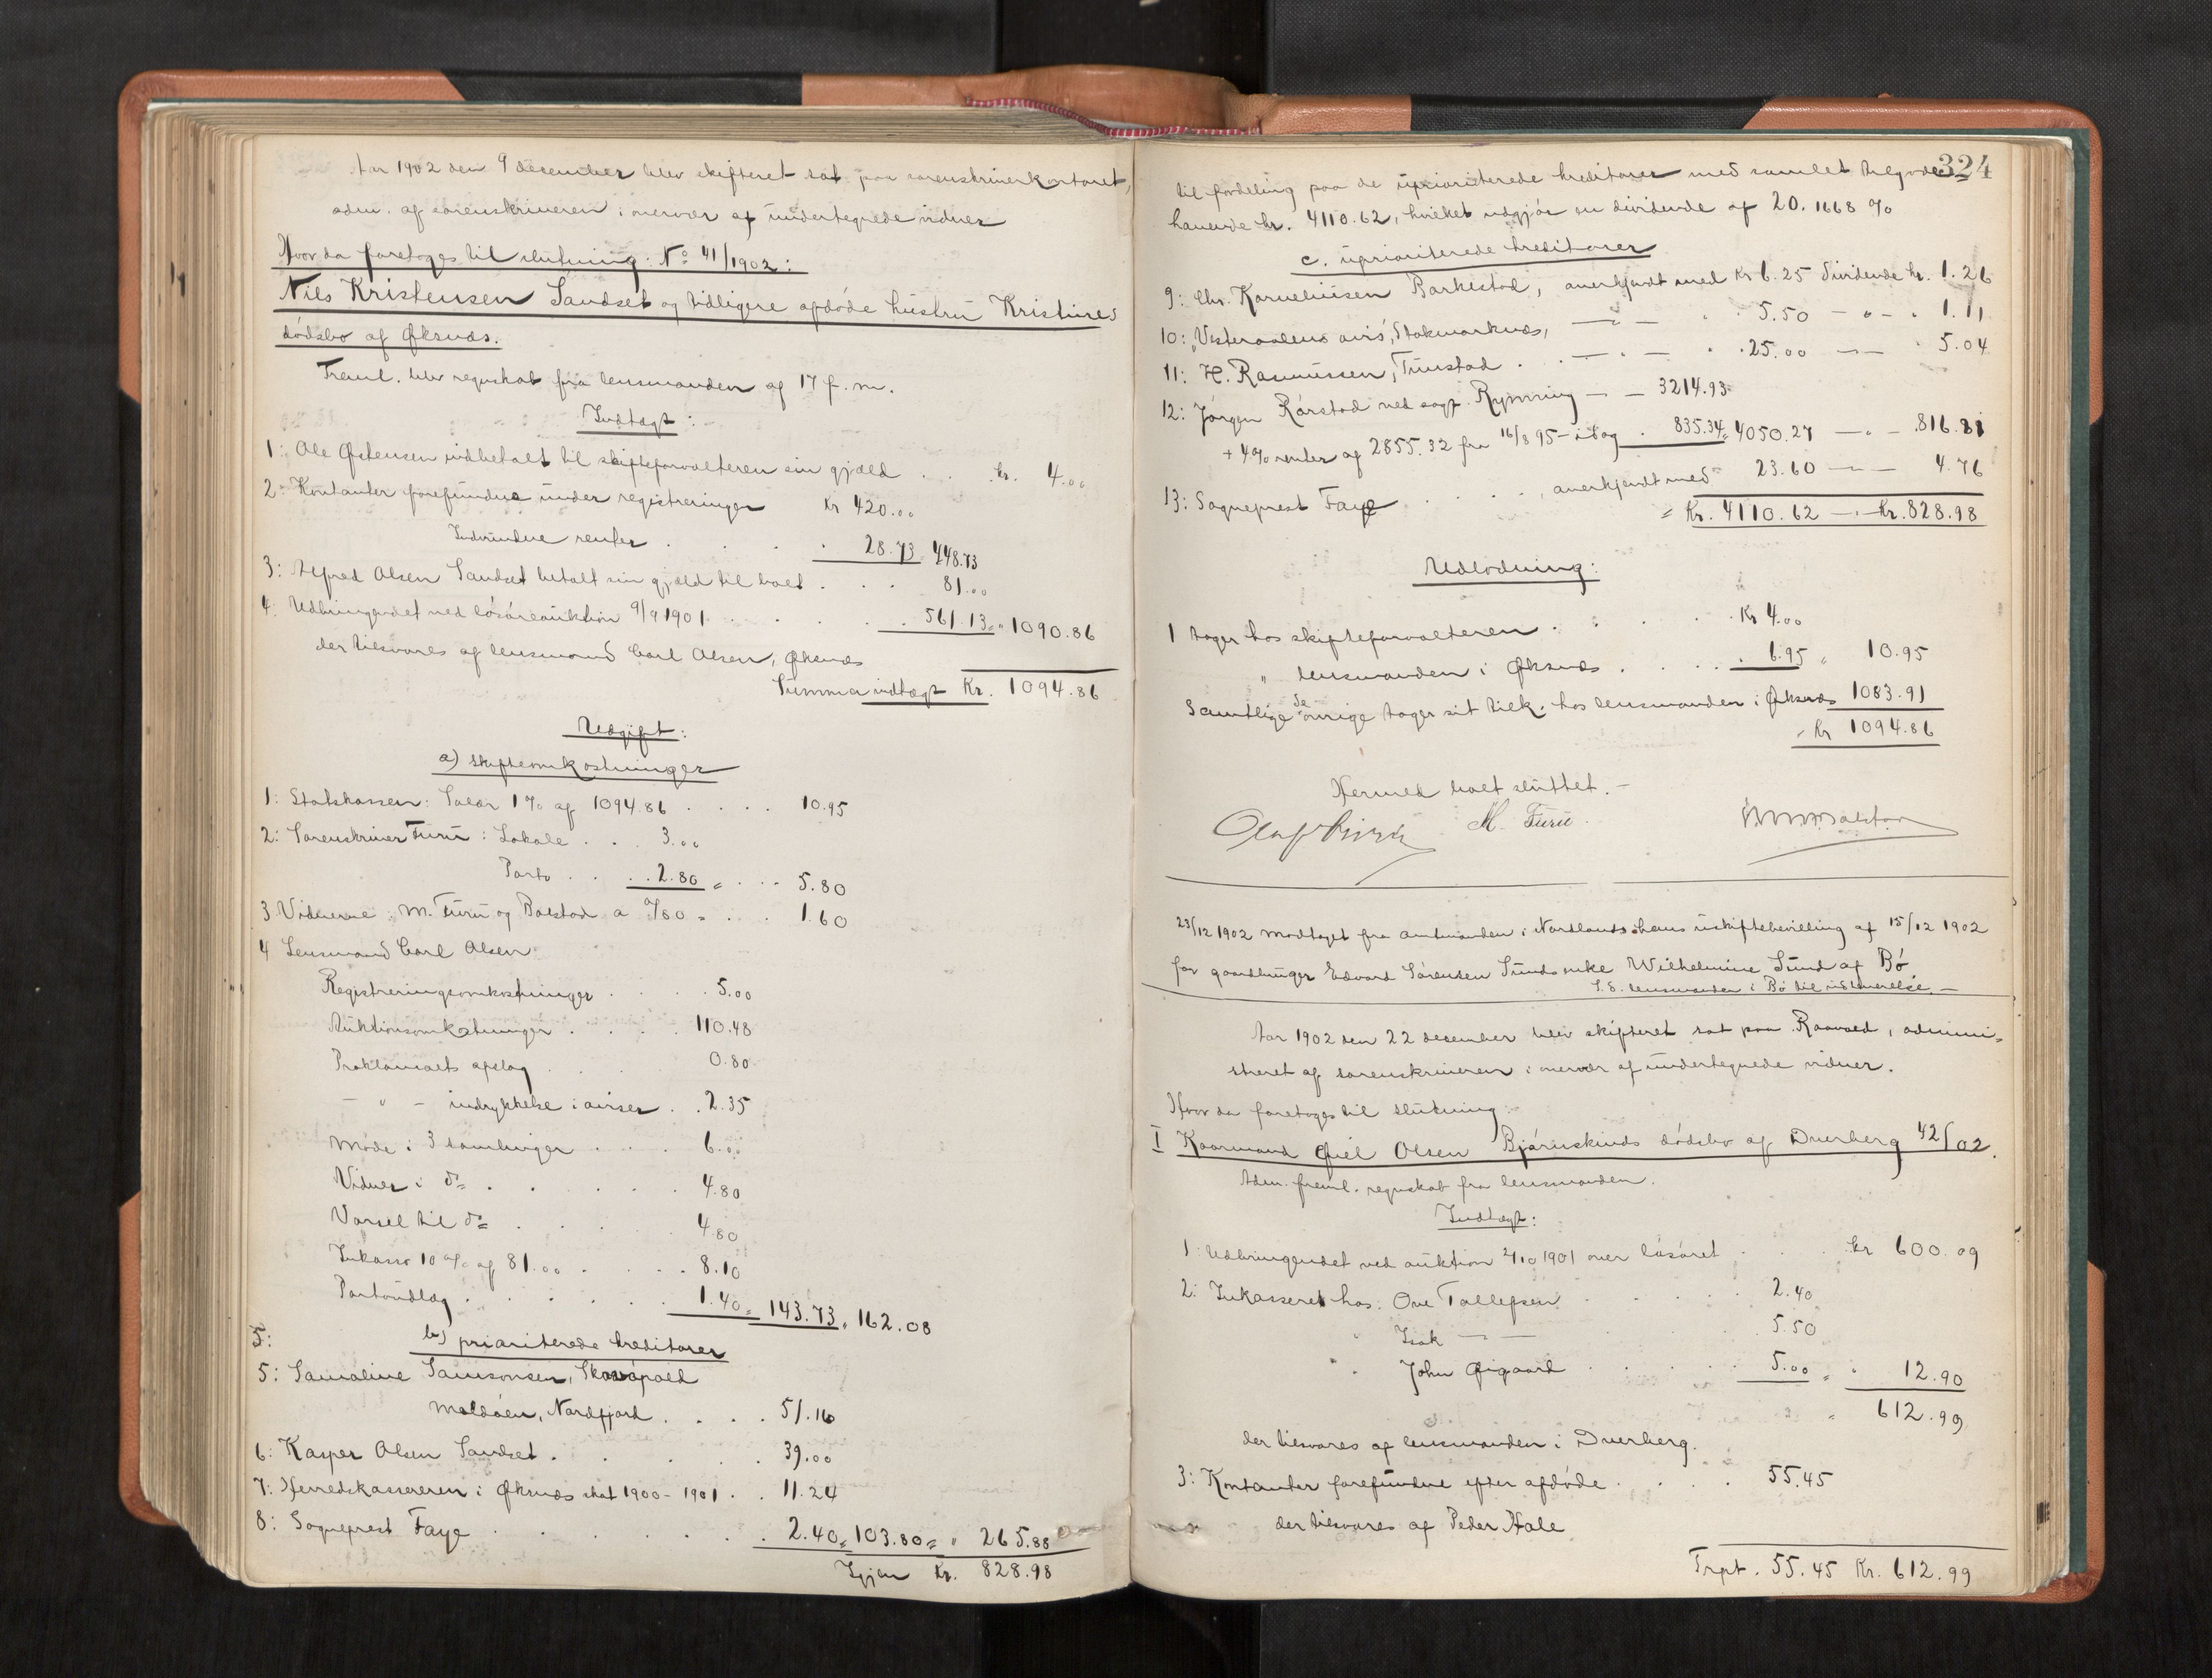 Aar 1902 den 9 december blev skifteret sat paa sorenskriverkontoret,
adm. af sorenskriveren i overvær af undertegnede vidner
Hvor da foretoges til slutning: No 41/1902:
Nils Kristensen Sandset og tidligere afdøde hustru Kristines
dødsbo af Øksnæs.
Freml. blev regnskab fra lensmanden af 17 f. m.
Indtægt:
1: Ole Østensen indbetalt til skifteforvalteren sin gjæld . . . kr. 4.00
2: Kontanter forefundne under registreringen Kr 420.00
Indvundne renter . . . . 28.73 = 448.73
3: Alfred Olsen Sandset betalt sin gjæld til boet . . . 81.00
4: Udbringendet ved løsøreauktion 9/9 1901 . . . . . 561.13 = " 1090.86
der tilsvares af lensmand Carl Olsen, Øksnæs
Summa indtægt Kr. 1094.86
Udgift:
a) skifteomkostninger
1: Statskassen: Salær 1 % af 1094.86 . . . . 10.95
2: Sorenskriver Furu: Lokale . . . 3.00
Porto . . . 2.80 = . . . 5.80
3 Vidnerne: M. Furu og Bolstad a /80 = . . . 1.60
4 Lensmand Carl Olsen:
Registreringsomkostninger . . . . 5.00
Auktionsomkostninger . . . . 110.48
Proklamaets opslag . . . . 0.80
— " — indrykkelse i aviser . . 2.35
Møde i 3 samlinger . . . . 6.00
Vidner i do . . . . . . 4.80
Varsel til do . . . . 4.80
Inkasso 10 % af 81.00 . . . . 8.10
Portoudlæg . . . . . . 1.40 = 143.73 = 162.08
5:
b) prioriterede kreditorer
5: Samoline Samsonsen,
Moldøen, Nordfjord . . . . 51.16
6: Kasper Olsen Sandset . . . . . 39.00
7: Herredskassereren i Øksnæs skat 1900 - 1901 . . 11.24
8: Sogneprest Faye . . . . . . . 2.40 = 103.80 = " 265.88
Igjen Kr. 828.98
324
til fordeling paa de uprioriterede kreditorer med samlet tilgodehavende
kr. 4110.62, hvilket udgjør en dividende af 20.1668 %
c. uprioriterede kreditorer
9: Chr. Korneliusen Barkestad, anerkjendt med Kr 6.25 Dividende kr. 1.26
10: "Vesteraalens avis", Stokmarknæs, — " — . . 5.50 — " — . 1.11
11: H. Rasmussen, Tinnstad . . — " — . . 25.00 — " — . 5.04
12: Jørgen Rørstad ved sagf. Rynning — — 3214.93
+ 4% renter af 2855.32 fra 16/8 95 - idag . 835.34 = 4050.27 — " — . 816.81
13: Sogneprest Faye . . . . , anerkjendt med 23.60 — " — 4.76
= Kr. 4110.62 — . Kr. 828.98
Udlodning:
1 tager hos skifteforvalteren . . . . . Kr 4.00
" lensmanden i Øksnæs . . . . . 6.95 " 10.95
Samtlige de øvrige tager sit tilk. hos lensmanden i Øksnæs 1083.91
= Kr 1094.86
Hermed boet sluttet. —
M. Furu.
23/12 1902 modtaget fra amtmanden i Nordlands uskiftebevilling af 15/12 1902
for gaardbruger Edvard Sørensen Sunds enke Wilhelmine Sund af Bø.
S. d. lensmanden i Bø til udleverelse. —
Aar 1902 den 22 december blev skifteret sat paa Raavold, admini-
streret af sorenskriveren i overvær af undertegnede vidner.
Hvor da foretoges til slutning:
I Kaarmand Øiel Olsen Bjørnskinds dødsbo af Dverberg 42/02.
Adm. freml. regnskab fra lensmanden.
Indtægt:
1: Udbringendet ved auktion 2/10 1901 over løsøret . . . kr 600.09
2: Inkasseret hos: Ove Tollefsen . . . . . 2.40
" Isak — " — 5.50
" John Øigaard . . . . . 5.00 = " 12.90
" 612.99
der tilsvares af lensmanden i Dverberg.
3: Kontanter forefundne efter afdøde . . . . 55.45
der tilsvares af Peder Hole
Trpt. 55.45 Kr. 612.99